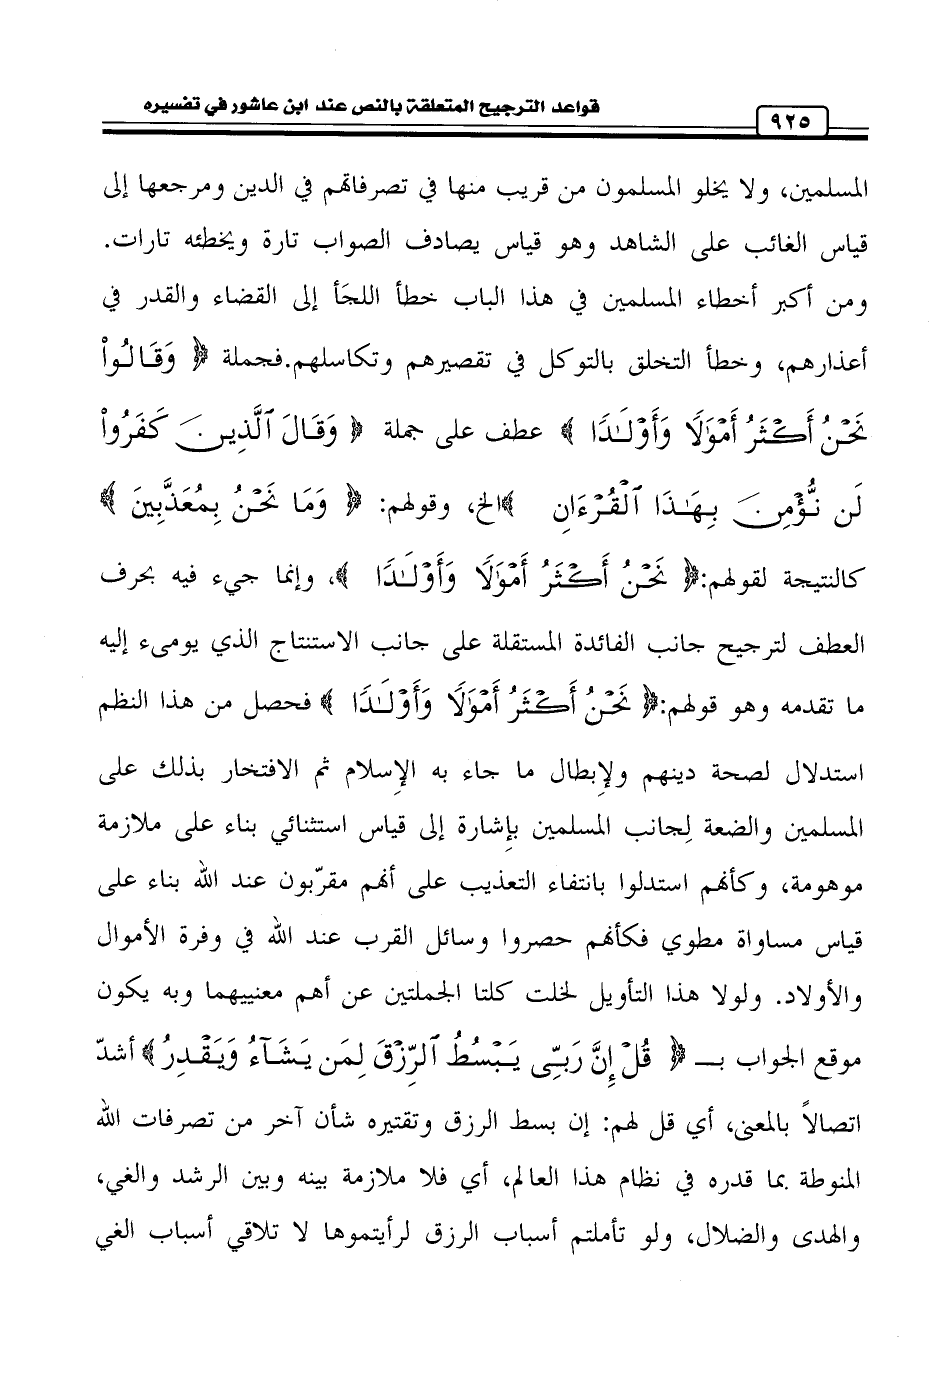 قواعد الترجيح المتعلقة بالنص عند ابن عاشور في تفسيره
٩٢٥
المسلمين، ولا يخلو المسلمون من قريب منها في تصرفاتهم في الدين ومرجعها إلى
قياس الغائب على الشاهد وهو قياس يصادف الصواب تارة ويخطئه تارات.
ومن أكبر أخطاء المسلمين في هذا الباب خطأ اللجَأ إلى القضاء والقدر في
أعذارهم، وخطأ التخلق بالتوكل في تقصيرهم وتكاسلهم.فجملة ﴿ وَقَالُواْ
نَحْنُ أَكْثَرُ أَمْوَٰلًا وَأَوْلَـٰدًا ﴾ عطف على جملة ﴿ وَقَالَ ٱلَّذِينَ كَفَرُواْ
لَن نُّؤْمِنَ بِهَـٰذَا ٱلْقُرْءَانِ ﴾الخ، وقولهم: ﴿ وَمَا نَحْنُ بِمُعَذَّبِينَ ﴾
كالنتيجة لقولهم:﴿ نَحْنُ أَكْثَرُ أَمْوَٰلًا وَأَوْلَـٰدًا ﴾، وإنما جيء فيه بحرف
العطف لترجيح جانب الفائدة المستقلة على جانب الاستنتاج الذي يومىء إليه
ما تقدمه وهو قولهم:﴿ نَحْنُ أَكْثَرُ أَمْوَٰلًا وَأَوْلَـٰدًا ﴾ فحصل من هذا النظم
استدلال لصحة دينهم ولإِبطال ما جاء به الإِسلام ثم الافتخار بذلك على
المسلمين والضعة لِجانب المسلمين بإشارة إلى قياس استثنائي بناء على ملازمة
موهومة، وكأنهم استدلوا بانتفاء التعذيب على أنهم مقرّبون عند الله بناء على
قياس مساواة مطوي فكأنهم حصروا وسائل القرب عند الله في وفرة الأموال
والأولاد. ولولا هذا التأويل لخلت كلتا الجملتين عن أهم معنييهما وبه يكون
موقع الجواب بـ ﴿ قُلْ إِنَّ رَبِّى يَبْسُطُ ٱلرِّزْقَ لِمَن يَشَآءُ وَيَقْدِرُ ﴾ أشدّ
اتصالاً بالمعنى، أي قل لهم: إن بسط الرزق وتقتيره شأن آخر من تصرفات الله
المنوطة بما قدره في نظام هذا العالم، أي فلا ملازمة بينه وبين الرشد والغي،
والهدى والضلال، ولو تأملتم أسباب الرزق لرأيتموها لا تلاقي أسباب الغي